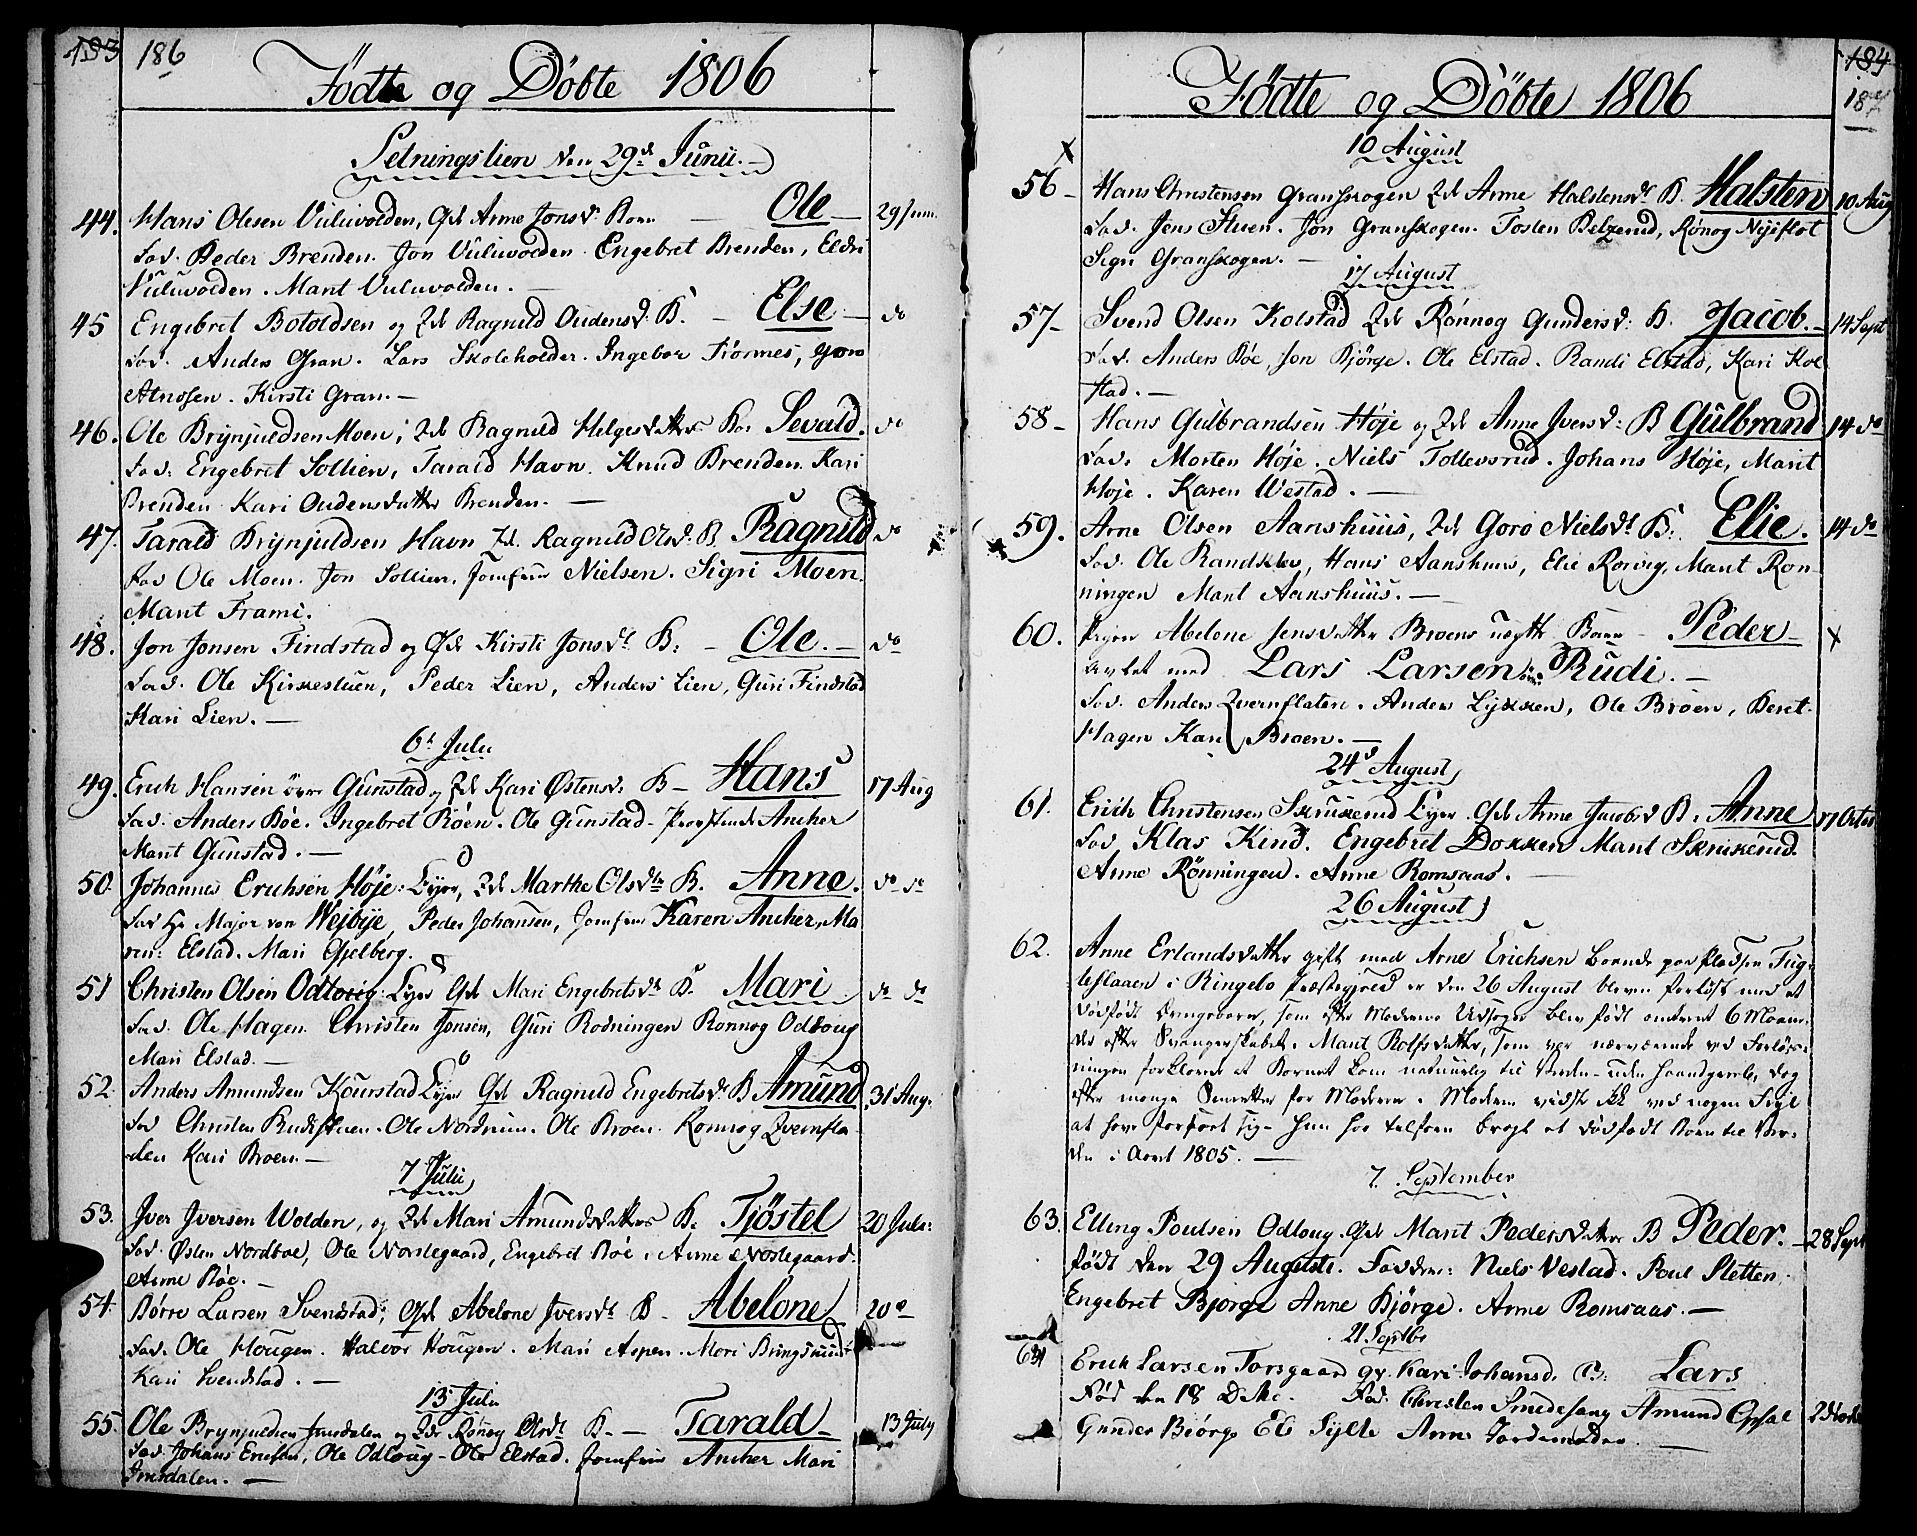 183 186
Födte og Döbte 1806
Setningslien den 29d Junii.
44. Hans Olesen Vuluvolden, Gdt Anne Jonsd. Barn — Ole — 29 Juni
Fad. Peder Brenden. Jon Vuluvolden. Engebret Brenden, Eldri
Vuluvolden. Marit Vuluvolden. —
45 Engebret Botoldsen og Zdt Ragnild Oudensd. B. — Else — do
Fad. Anders Gran. Lars Skoleholder. Ingebor Fiörmes, Goro
Atnosen. Kirsti Gran. —
46. Ole Brynjuldsen Moen, Zdt Ragnild Helgesdatters B. Sevald. do
Fad: Engebret Sollien, Tarald Havn. Knud Brenden. Kari
Brenden Kari Oudensdatter Brenden. —
47. Tarald Brynjuldsen Havn Zd. Ragnild Olsd. B Ragnild do
Fad Ole Moen. Jon Sollien. Jomfrue Nielsen. Sigri Moen.
Marit Frami.
48. Jon Jonsen Findstad og Gdt Kirsti Jonsdt B: — Ole. — do
Fad. Ole Kirkestuen, Peder Lien, Anders Lien, Guri Findstad
Kari Lien. —
6t Julii
49. Erich Hansen övre Gunstad og Zdt Kari Østensd. B — Hans 17 Aug
Fad. Anders Böe. Ingebret Röen. Ole Gunstad. Provstinde Ancher
Marit Gunstad. —
50. Johannes Erichsen Höje: Eyer, Zdt Marthe Olsdtr B. Anne. do do
Fad Hr Major von Wejbye, Peder Johansen, Jomfrue Karen Ancher, Ma
ren: Elstad. Mari Gjelberg.
51 Christen Olsen Odlovig: Eyer Gdt Mari Engebretsdt B. Mari do do
Fad. Ole Hagen. Christen Jonsen, Guri Rodningen Rønnog Odloug
Mari Elstad. —
52. Anders Amundsen Kourstad Eyer Gdt Ragnild Engebretsdt B Amund 31 Aug.
Fad Christen Rudistuen. Ole Nordrum. Ole Broen. Ronnog Qvernfla-
den Kari Broen. —
7 Julii
53. Iver Iversen Wolden, og Zdt Mari Amundsdatters B. Tjöstel 20 Juli:
Fad. Østen Nordboe, Ole Norslegaard, Engebret Böe. Anne Norslegaard.
Anne Böe. —
54. Börre Larsen Svendstad: Gdt Abelone Iversdt B — Abelone 20 do
Fad. Ole Hougen. Halvor Hougen. Mari Aspen. Mari Bringsruud
Kari Svendstad. —
13 Julii
55. Ole Brynjuldsen Imsdalen og Zdt Rönog Olsdt B. — Tarald — 13 July
Fad. Johans Enersen, Ole Odloug — Ole Elstad. Jomfrue Ancher Mari
Imsdalen. —
184
187
Födte og Döbte 1806
10 August
56 — Hans Christensen Granskogen Zdt Anne Halstensdt B. Halsten 10 Aug
Fad. Jens Stuen. Jon Granskogen. Tosten Belzerud, Rønog Nyeflot
Sigri Granskogen. —
17 August
57 — Svend Olsen Kolstad Zdt Rönnog Gundersd: B. Jacob. — 14 Sept
Fad. Anders Böe, Jon Björge. Ole Elstad. Randi Elstad, Kari Kol
stad. —
58 — Hans Gulbrandsen Höje og Zdt Anne Iversd: B Gulbrand 14 do
Fad. Morten Höje. Niels Tollevsrud. Johans Höje, Marit
Höje. Karen Westad. —
59. Arne Olsen Aanshuus, Zdt Goro Nielsdt B. Elie. 14 do
Fad. Ole Randklev, Hans Aanshuus, Elie Rorvig, Marit Ron-
ningen Marit Aanshuus. —
60. Pigen Abelone Jensdatter Broens uægte Barn — Peder —
avlet med Lars Larsen Rudi. —
Fad. Anders Qvernflaten. Anders Lykken, Ole Broen, Beret
Hagen Kari Broen. —
24d August
61. Erich Christensen Skrukerud Eyer Gdt Anne Jacobsd B. Anne 17 Octob
Fad Klas Kind. Engebret Dokken Marit Skrukerud.
Anne Rönningen. Anne Romsaas. —
26 August
62. Anne Erlandsdatter gift med Arne Erichsen boende paa Pladsen Fug-
leslaaen i Ringebo Præstegield er den 26 August bleven forløst med et
dödfödt Drengebarn, som efter Moderens Udsagn blev födt omtrent 6 Maane-
der efter Svangerskabet. Marit Rolfsdatter, som var nærværende ved Forløs-
ningen forklarer at Barnet kom naturlig til Verden uden Haandgreb, dog
efter mange Smerter for Moderen. Moderen vidste ikke ved nogen Feyl
at have forført sig. Hun har tilforn bragt et dödfödt Barn til Ver-
den i Aaret 1805. —
7. September
63. Elling Poulsen Odloug Gdt Marit Pedersdatter B Peder. — 28 Sept
födt den 29 Augusti. Faddere: Niels Vestad. Poul Sletten.
Engebret Bjorge Anne Björge. Anne Romsaas. —
21 Septbr
64 Erich Larsen Torsgaard gv. Kari Johansd. B: Lars
Fød den 18 D.M. Fad. Christen Smedesang Amund Opsal
Gunder Biörge Eli Sylte Anne Jordemoder —